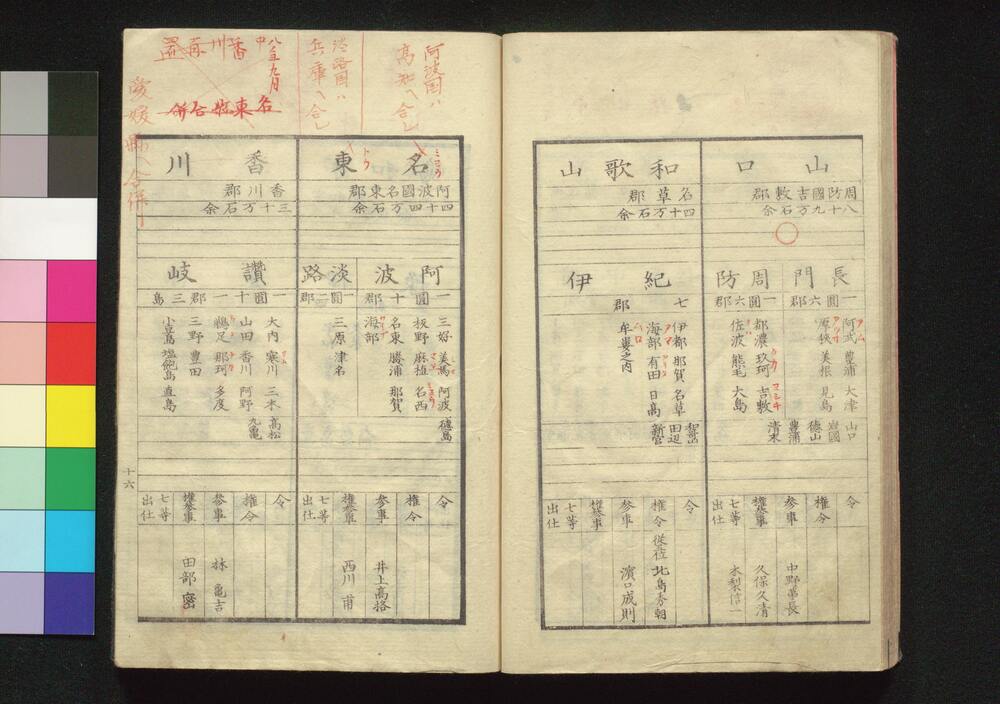 山口
周防國吉敷郡
八十九万石余
長門
一圓六郡
周防
一圓六郡
阿武 豊浦 大津
厚狭 美祢 見島
都濃 玖珂 吉敷
佐波 熊毛 大島
山口
岩國
徳山
豊浦
清末
令
権令
参事 中野悟一
権参事 久保久清
七等出仕 木梨信一
和歌山
名草郡
四十万石余
紀伊
七郡
伊都 那賀 名草
海部 有田 日高
牟婁之内
和歌山
田辺
新宮
令
権令 従六位 北島秀朝
参事 濱口成則
権参事
七等出仕
阿波国ハ
高知ヘ合し
淡路国ハ
兵庫ヘ合し
名東
ミヨウ
トウ
阿波國名東郡
四十四万石余
阿波
一圓十郡
淡路
一圓二郡
三好 美馬 阿波
板野 麻植 名西
名東 勝浦 那賀
海部
三原 津名
徳島
令
権令
参事 井上高格
権参事 西川甫
七等出仕
八年九月
中香川再置
名東縣合併
愛媛縣ヘ合併
香川
香川郡
三十万石余
讃岐
一圓十一郡三島
大内 寒川 三木
山田 香川 阿野
鵜足 那珂 多度
三野 豊田
小豆島 塩飽島 直島
高松
丸亀
令
権令
参事 林亀吉
権参事 田部密
七等出仕
十六